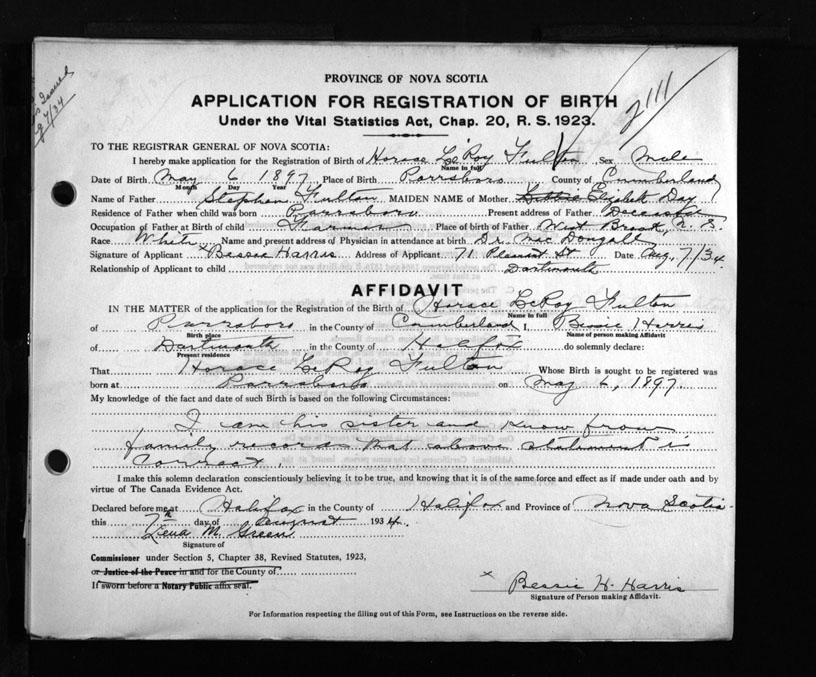 Issued
7/34
2111
PROVINCE OF NOVA SCOTIA
APPLICATION FOR REGISTRATION OF BIRTH
Under the Vital Statistics Act, Chap. 20, R. S. 1923.
TO THE REGISTRAR GENERAL OF NOVA SCOTIA:
I hereby make application for the Registration of Birth of Horace LeRoy Fulton Sex Male
Name in full
Date of Birth May 6 1897 Place of Birth Parrsboro County of Cumberland
Month Day Year
Name of Father Stephen Fulton MAIDEN NAME of Mother Elizabeth Day
Residence of Father when child was born Parrsboro Present address of Father Deceased
Occupation of Father at Birth of child Farmer Place of birth of Father West Brook, N. S.
Race White Name and present address of Physician in attendance at birth Dr. Mac Dougall
Signature of Applicant x Bessie Harris Address of Applicant 71 Pleasant St. Date Aug. 7/34.
Relationship of Applicant to child Dartmouth
AFFIDAVIT
IN THE MATTER of the application for the Registration of the Birth of Horace LeRoy Fulton
Name in full
of Parrsboro in the County of Cumberland I, Bessie Harris
Birth place Name of person making Affidavit
of Dartmouth in the County of Halifax do solemnly declare:
Present residence
That Horace LeRoy Fulton Whose Birth is sought to be registered was
born at Parrsboro on May 6, 1897.
My knowledge of the fact and date of such Birth is based on the following Circumstances:
I am his sister and know from
family records that above statement is
correct.
I make this solemn declaration conscientiously believing it to be true, and knowing that it is of the same force and effect as if made under oath and by
virtue of The Canada Evidence Act.
Declared before me at Halifax in the County of Halifax and Province of Nova Scotia
this 7th day of August 1934.
Lena M. Green
Signature of
Commissioner under Section 5, Chapter 38, Revised Statutes, 1923,
or Justice of the Peace in and for the County of
If sworn before a Notary Public affix seal.
x Bessie H. Harris
Signature of Person making Affidavit.
For Information respecting the filling out of this Form, see Instructions on the reverse side.